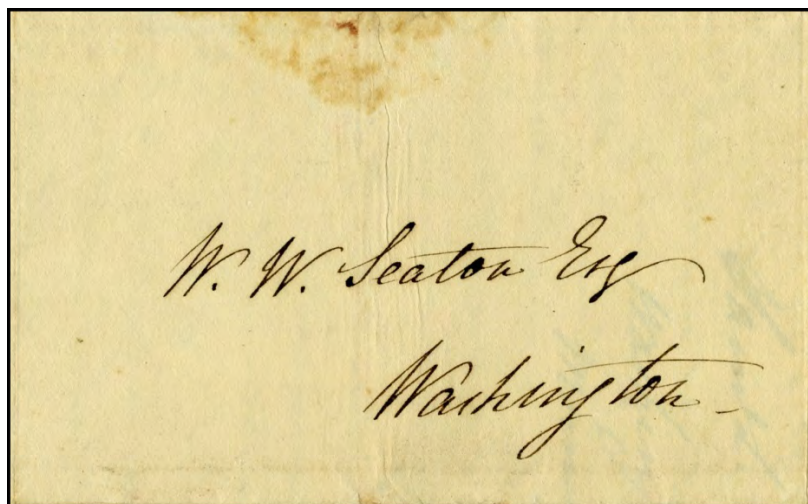 W. W. Seaton Esq
Washington -